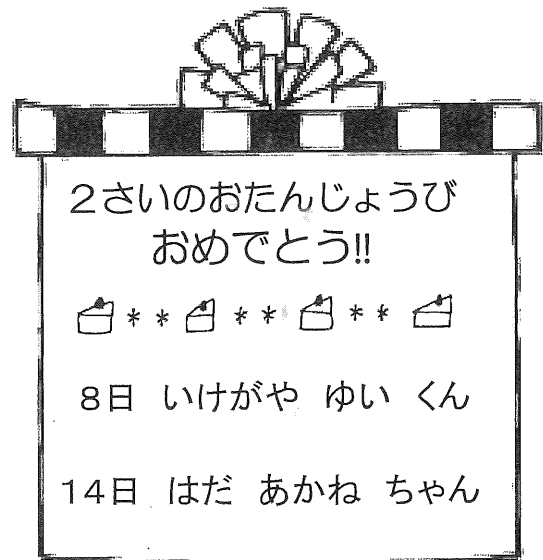 ２さいのおたんじょうび
おめでとう!!
＊＊　＊＊　＊＊
８日　いけがや　ゆい　くん
１４日　はだ　あかね　ちゃん